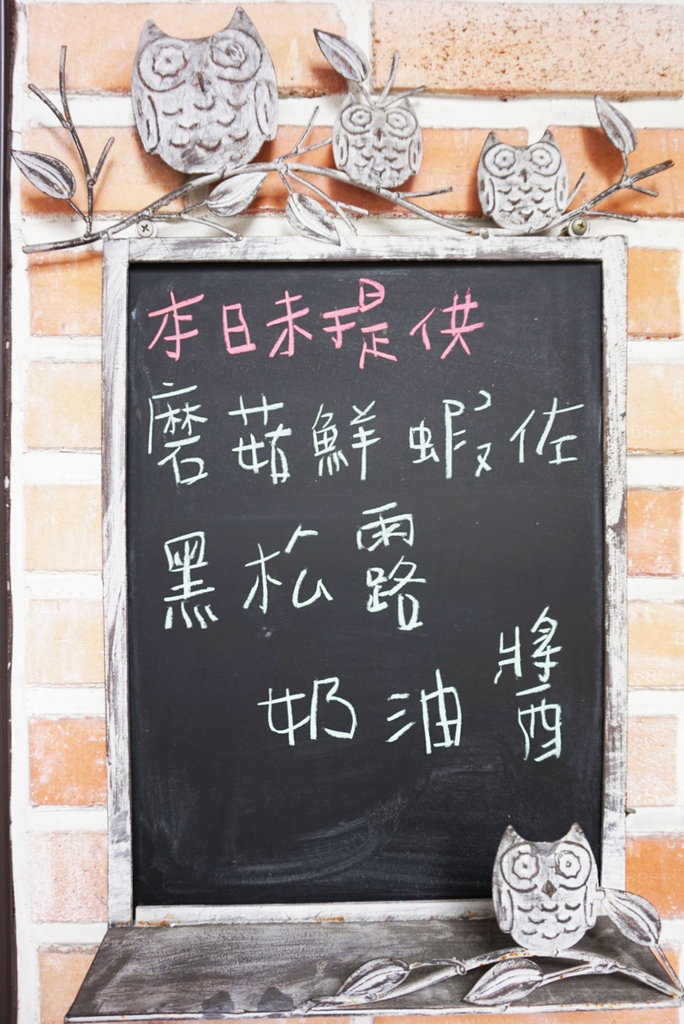 本日未提供
磨菇鮮蝦佐
黑松露
奶油醬